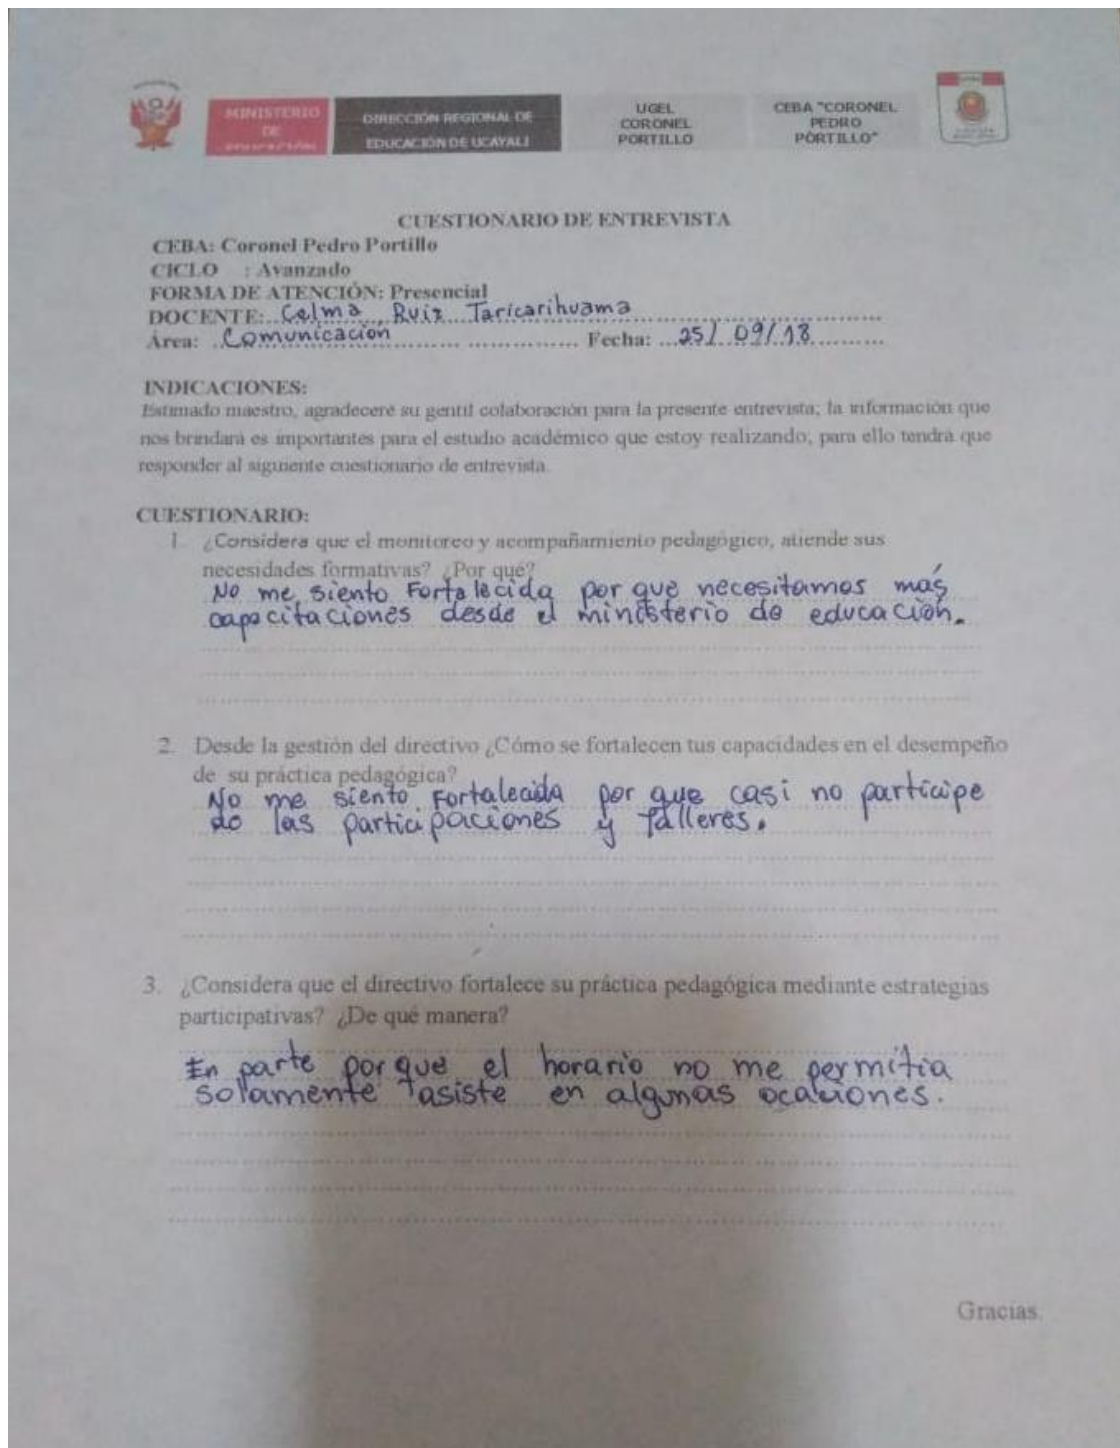 MINISTERIO
DE
DIRECCIÓN REGIONAL DE
EDUCACIÓN DE UCAYALI
UGEL
CORONEL
PORTILLO
CEBA "CORONEL
PEDRO
PORTILLO"
CUESTIONARIO DE ENTREVISTA
CEBA: Coronel Pedro Portillo
CICLO : Avanzado
FORMA DE ATENCIÓN: Presencial
DOCENTE: Celma Ruiz Taricarihuama
Área: Comunicación Fecha: 25/09/18
INDICACIONES:
Estimado maestro, agradeceré su gentil colaboración para la presente entrevista; la información que
nos brindará es importantes para el estudio académico que estoy realizando; para ello tendrá que
responder al siguiente cuestionario de entrevista.
CUESTIONARIO:
1. ¿Considera que el monitoreo y acompañamiento pedagógico, atiende sus
necesidades formativas? ¿Por qué?
No me siento Fortalecida por que necesitamos más
capacitaciones desde el ministerio de educación.
2. Desde la gestión del directivo ¿Cómo se fortalecen tus capacidades en el desempeño
de su práctica pedagógica?
No me siento Fortalecida por que casi no participe
de las participaciones y Talleres.
3. ¿Considera que el directivo fortalece su práctica pedagógica mediante estrategias
participativas? ¿De qué manera?
En parte por que el horario no me permitia
solamente asiste en algunas ocaciones.
Gracias.